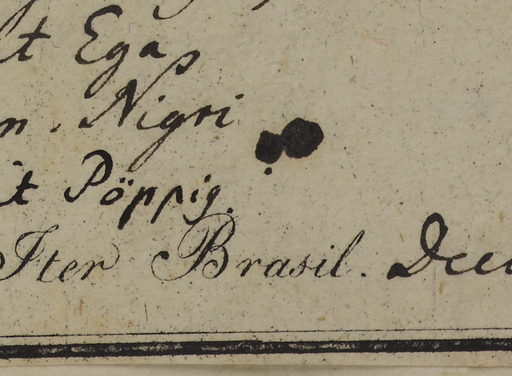 t Egas
m. Nigri
it Pöppig.
Iter Brasil. Dec